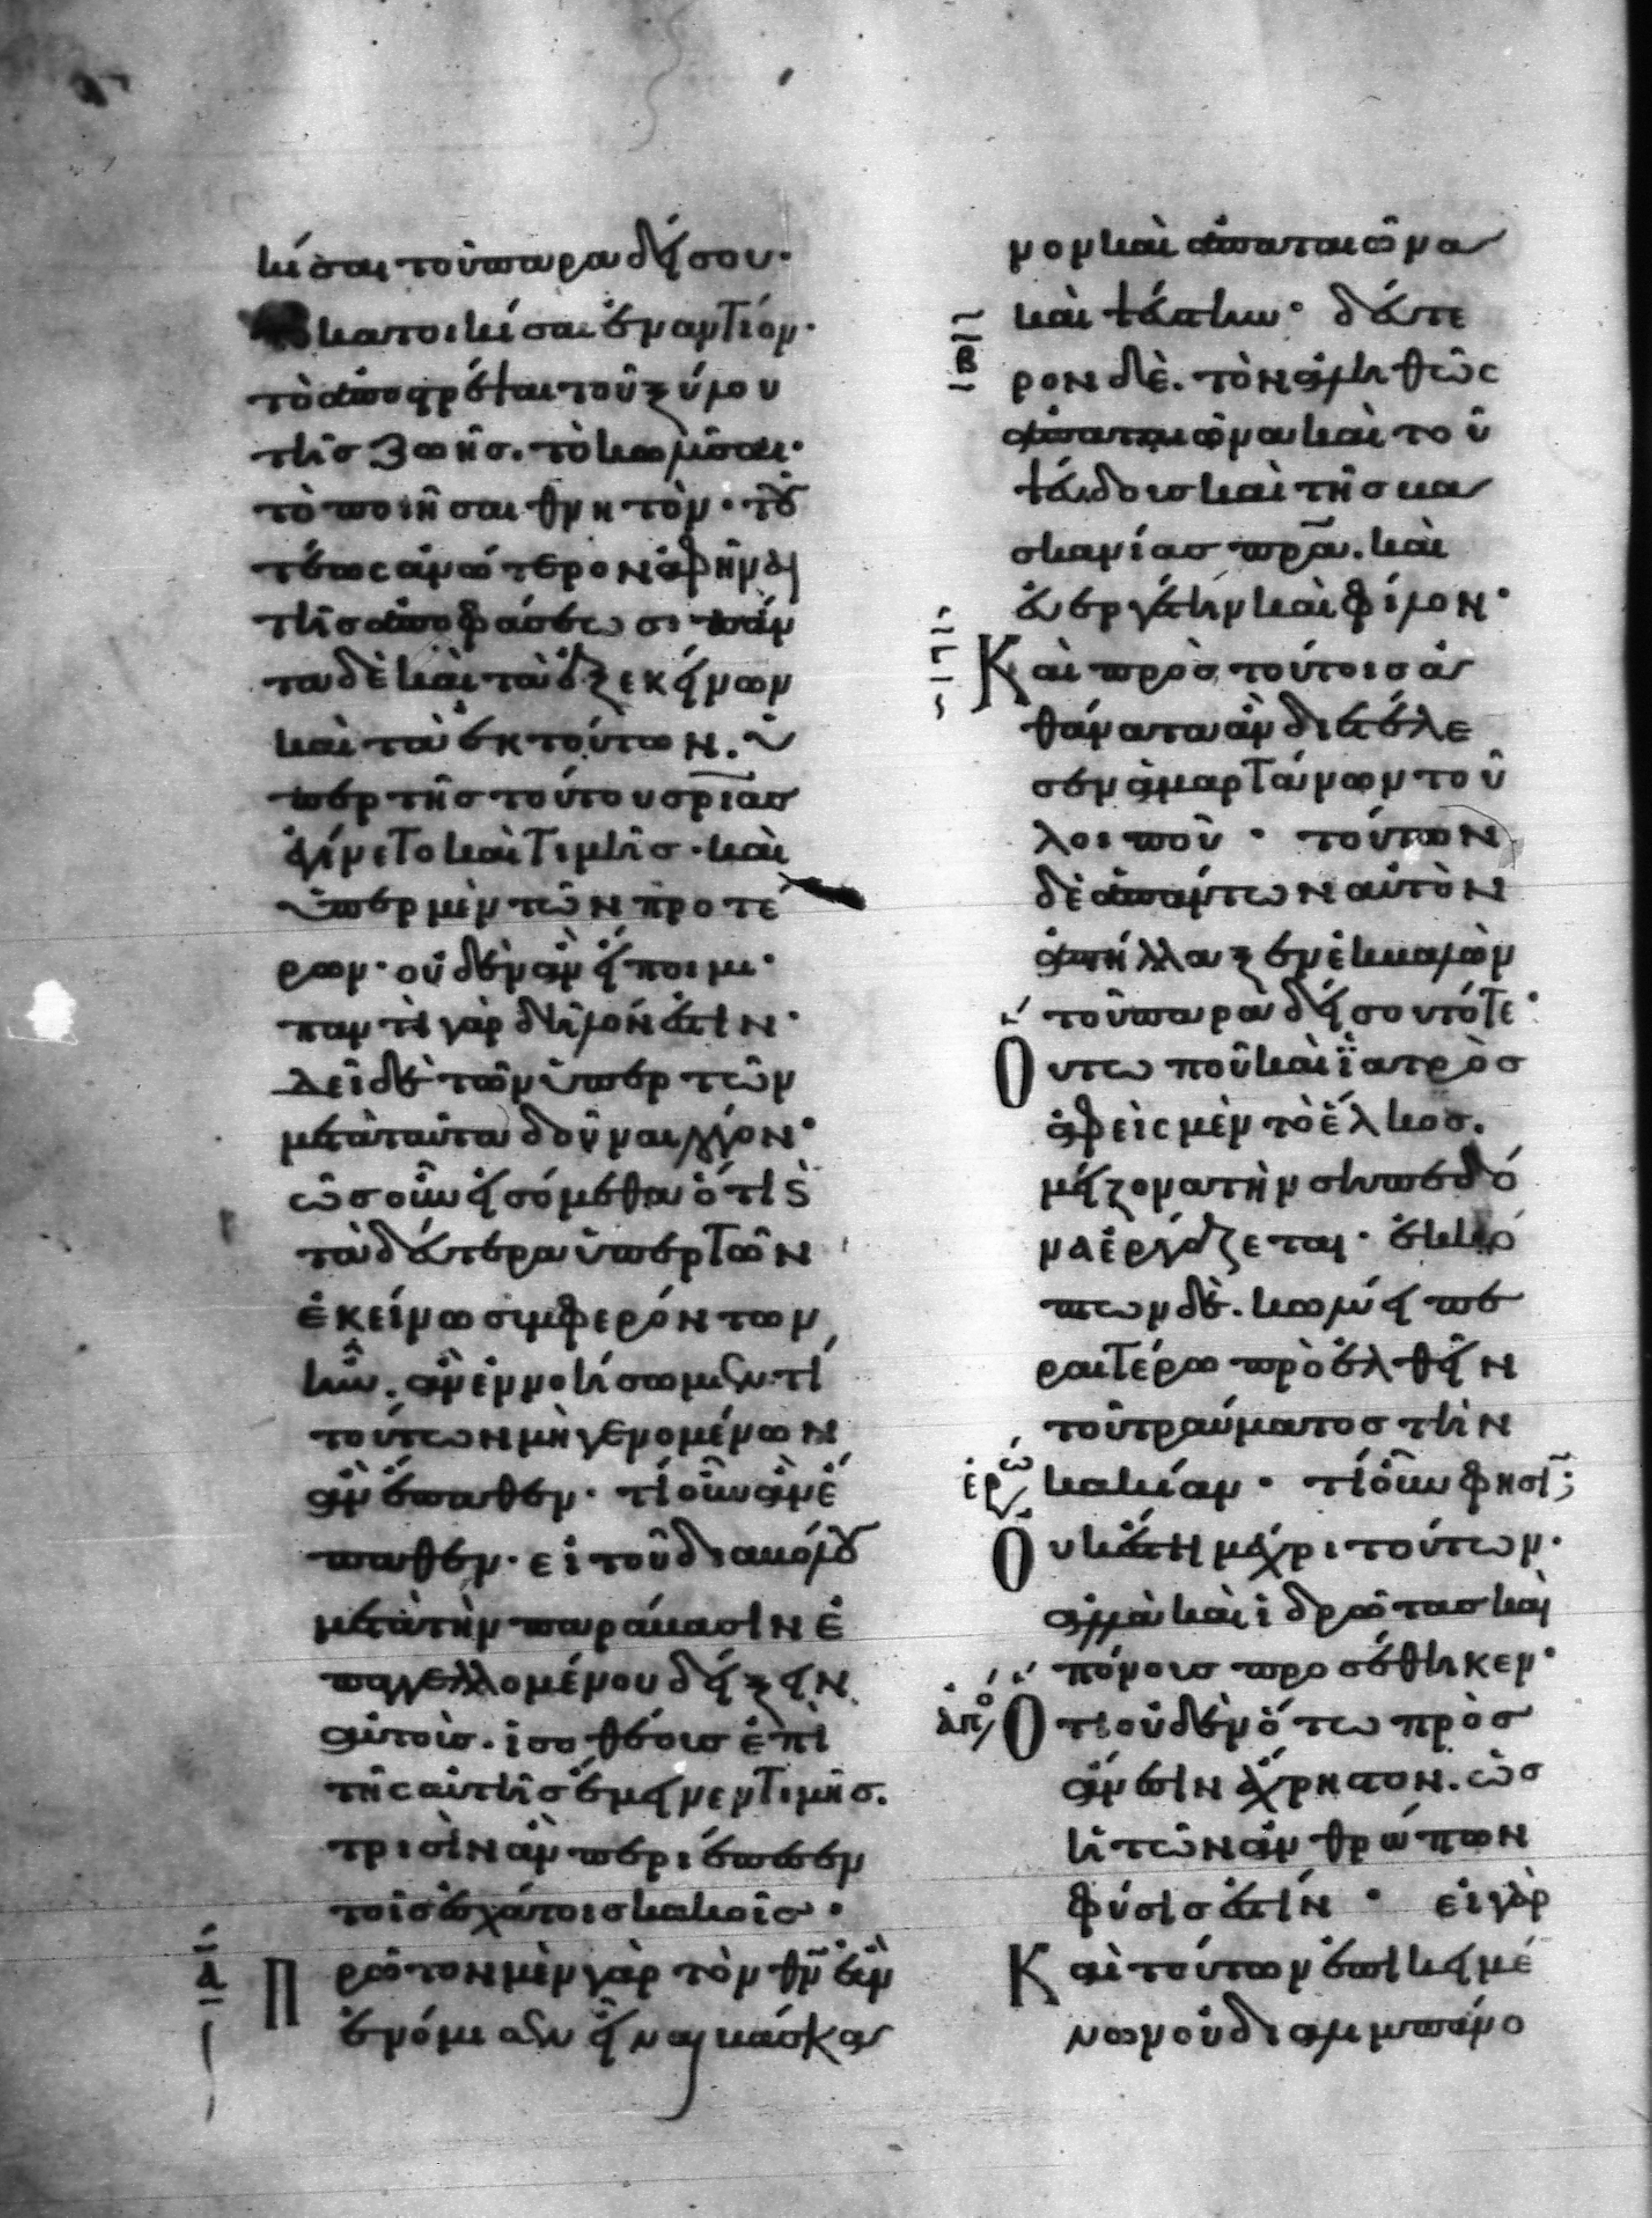 κίσαι τοῦ παραδείσου·
κατοικίσαι ἐναντίον·
τὸ ἀποστρέψαι τοῦ ξύλου
τῆς ζωῆς. τὸ κωλῦσαι·
τὸ ποιῆσαι θνητὸν· τὸ
τέως ἀνώτερον ἀφεῖναι
τῆς ἀποφάσεως· πάν
τα δὲ καὶ τὰ ἐξ ἐκείνων
καὶ τὰ ἐκ τούτων. ὑ
πὲρ τῆς τούτου σ̅ρ̅ι̅ας
ἐγίνετο καὶ τιμῆς· καὶ
ὑπὲρ μὲν τῶν προτέ
ρων· οὐδὲν ἂν εἴποιμι·
παντὶ γὰρ δῆλόν ἐστιν·
δεῖ δὲ τὸν ὑπὲρ τῶν
μετὰ ταῦτα δοῦναι λόγον·
πῶς οὖν εἰσόμεθα ὅτι καὶ
τὰ δεύτερα ὑπὲρ τῶν
ἐκείνω συμφερόντων
ἦν. ἂν ἐννοήσωμεν τί
τούτων μὴ γενομένων
ἂν ἔπαθεν· τί οὖν ἂν ἔ
παθεν· εἰ τοῦ διαβόλου
μετὰ τὴν παράβασιν ἐ
παγγελλομένου δείξειν
αὐτοὺς· ἰσοθέους ἐπὶ
τῆς αὐτῆς ἔμεινεν τιμῆς.
τρισὶν ἂν περιέπεσεν
τοῖς ἐσχάτοις κακοῖς·
α
Πρῶτον μὲν γὰρ τὸν θ̅ν̅
ἐνόμισεν εἶναι βάσκα
νον καὶ ἀπατεῶνα
β
καὶ ψεύστην· δεύτε
ρον δὲ. τὸν ἀληθῶς
ἀπατεῶνα καὶ τοῦ
ψεύδους καὶ τῆς βα
σκανίας π̅ρ̅α. καὶ
εὐεργέτην καὶ φίλον·
γ
Καὶ πρὸς τούτοις ἀ
θάνατα ἂν διετέλε
σεν ἁμαρτάνων τοῦ
λοιποῦ· τούτων
δὲ ἁπάντων αὐτὸν
ἀπήλλαξεν ἐκβαλὼν
τοῦ παραδείσου τότε·
Οὕτω που καὶ ἰατρὸς
ἀφεὶς μὲν τὸ ἕλκος.
μείζονα τὴν σηπεδό
να ἐργάζεται· ἐκκό
πτων δὲ. κωλύει πε
ραιτέρω προελθεῖν
τοῦ τραύματος τὴν
ἐρώ
κακίαν· τί οὖν φησί;
Οὐκ ἔστη μέχρι τούτων·
ἀλλὰ καὶ ἱδρῶτας καὶ
πόνους προσέθηκεν·
ἀπό
Ὅτι οὐδὲν οὕτω πρὸς
ἄνεσιν ἄχρηστον. ὡς
ἡ τῶν ἀνθρώπων
φύσις ἐστίν· εἰ γὰρ
Καὶ τούτων ἐπικειμέ
νων οὐ διαλιμπάνο